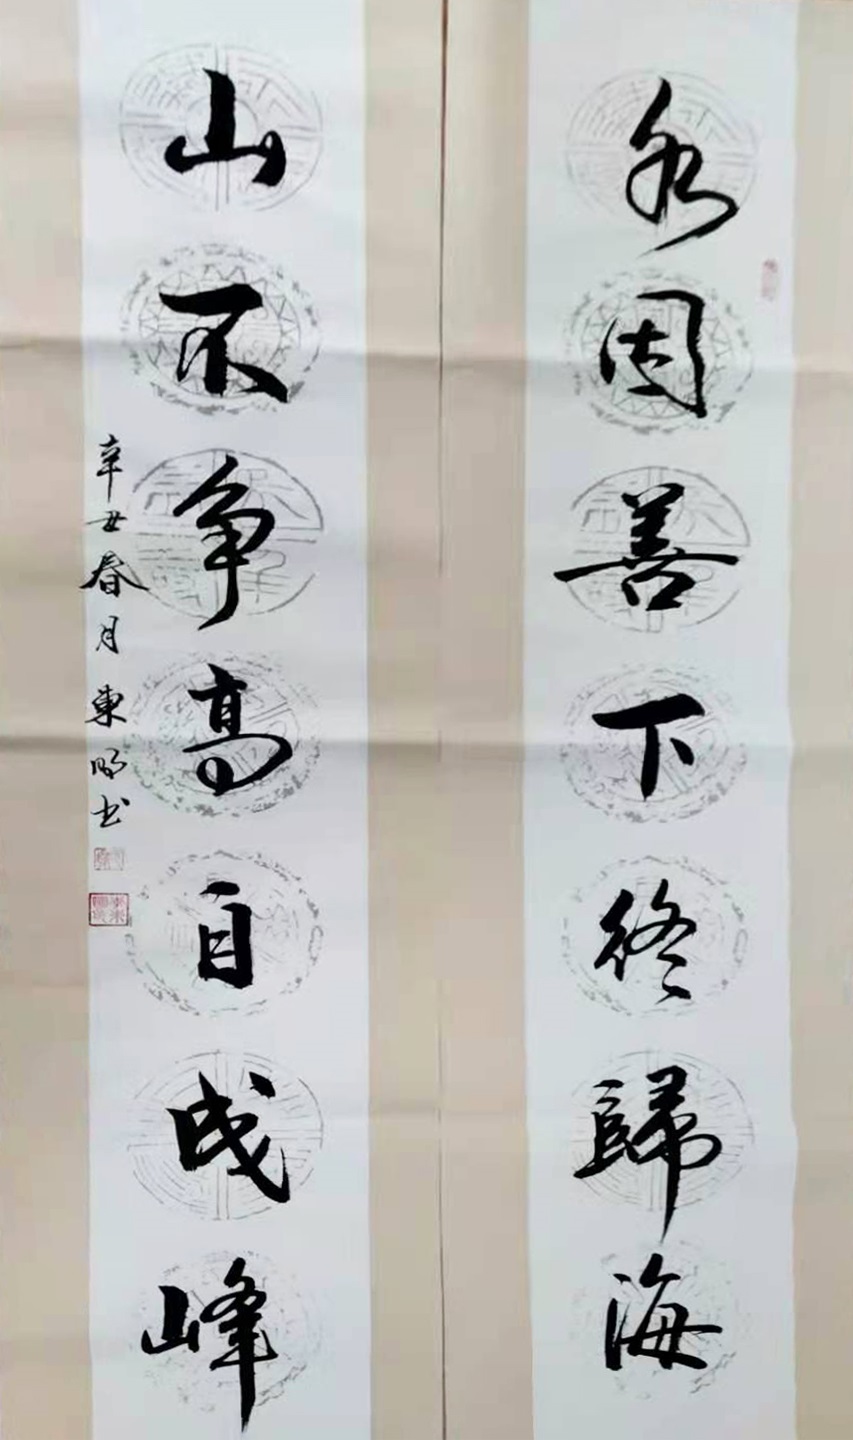 水因善下終歸海
山不争高自成峰
辛丑春月東明书